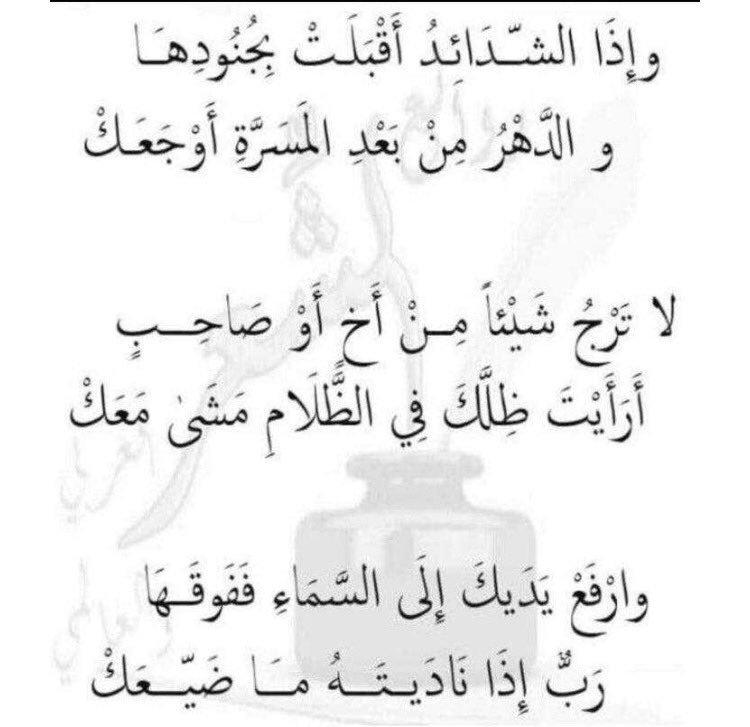 وإِذَا الشّـدَائِـدُ أَقْبَلَـتْ بِجُنُودِهـَـا
و الدَّهْرُ مِنْ بَعْدِ المَسَرَّةِ أَوْجَعَـكْ
لا تَرْجُ شَيْئاً مِـنْ أَخٍ أَوْ صَاحِـبٍ
أَرَأَيْتَ ظِلَّكَ فِي الظَّلَامِ مَشَىٰ مَعَكْ
وارْفَعْ يَدَيكَ إِلَى السَّمَاءِ فَفَوقَـهَا
رَبٌّ إِذَا نَادَيـتَــهُ مـَـا ضَيّـعَكْ